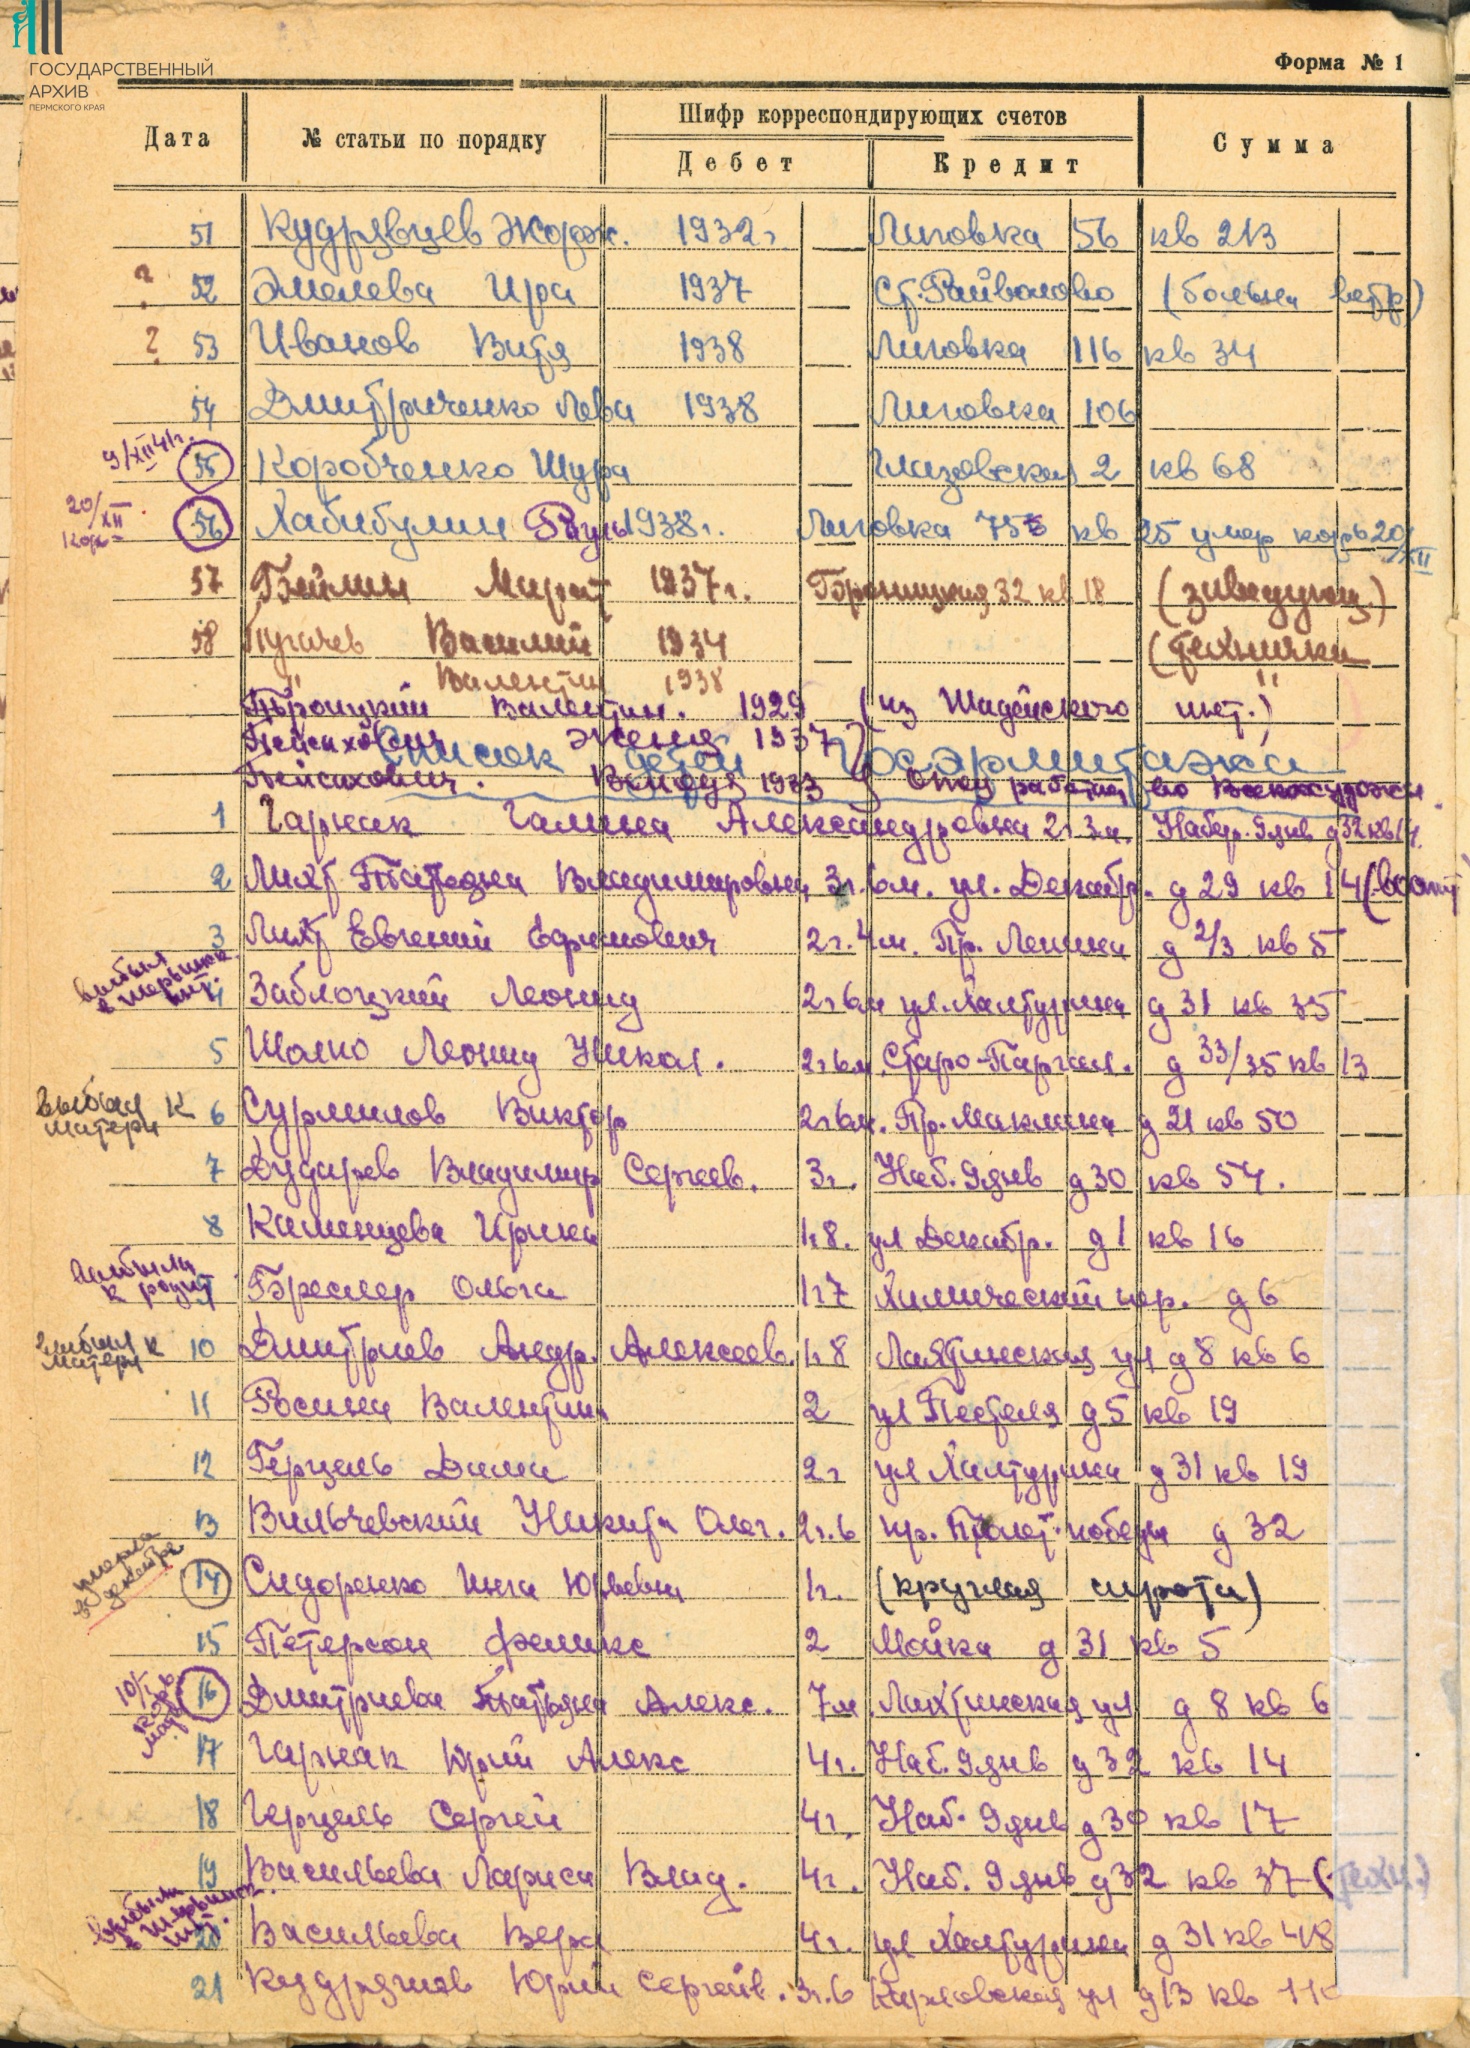 ГОСУДАРСТВЕННЫЙ
АРХИВ
ПЕРМСКОГО КРАЯ
Форма № 1
Дата № статьи по порядку Шифр корреспондирующих счетов Сумма
Дебет Кредит
51 Кудрявцев Жорж. 1932г Лиговка 56 кв 213
? 52 Эмелева Ира 1937 Ст. Райволово (больна ветр)
? 53 Иванов Витя 1938 Лиговка 116 кв 34
54 Дмитриченко Лева 1938 Лиговка 106
9/XII 41г. 55 Коробченко Шура Глазовская 2 кв 68
20/XII Корь 56 Хабибулин Рауль 1938г. Лиговка 75 кв 25 умер корь 20/XII
57 Бейлин Марат 1937г. Бронницкая 32 кв 18 (заведующ)
58 Пугачев Василий 1934 (технички
" Валентин 1938 "
Троицкий Валентин. 1929 (из Шадейского инт.)
Пейсахович Женя 1937
Список детей Госэрмитажа
Пейсахович. 1933 Отец работал во
1 Гарнак Галина Александровна 2г 3м. Набер. 9 янв д 32 кв 14.
2 Лихт Татьяна Владимировна 3г. 6м. ул. Декабр. д 29 кв 14
3 Лихт Евгений Ефимович 2г. 4м. Пр. Ленина д 2/3 кв 5
выбыл в инт.
4 Заблоцкий Леонид 2г 6м ул. Халтурина д 31 кв 35
5 Шолио Леонид Никол. 2г 6м. Старо-Паргал. д 33/35 кв 13
выбыл к матери 6 Сурмилов Виктор 2г 6м. Пр. Маклина д 21 кв 50
7 Дударев Владимир Сергеев. 3г. Наб. 9 янв д 30 кв 54.
8 Каменцева Ирина 1г 8. ул Декабр. д 1 кв 16
выбыла к родит 9 Бреслер Ольга 1г 7 Химический пер. д 6
выбыл к матери 10 Дмитриев Андр. Алексеев. 1г 8 Лахтинская ул д 8 кв 6
11 Росина Валентина 2 ул Пестеля д 5 кв 19
12 Герцель Дима 2г ул Халтурина д 31 кв 19
13 Вильчевский Никита Олег. 2г. 6 пр. Пролет. победы д 32
умерла декабря 14 Сидоренко Инга Юрьевна 1г. (круглая сирота)
15 Петерсон Феликс 2 Мойка д 31 кв 5
10/I корь 16 Дмитриева Татьяна Алекс. 7м. Лахтинская ул д 8 кв 6
17 Гарнак Юрий Алекс 4г. Наб. 9 янв д 32 кв 14
18 Герцель Сергей 4г. Наб. 9 янв д 30 кв 17
19 Васильева Лариса Влад. 4г. Наб. 9 янв д 32 кв 37 (техн.)
выбыла в инт.
20 Васильева Вера 4г. ул Халтурина д 31 кв 48
21 Кудряшов Юрий Сергеев. 3г. 6 Кирховская ул д 13 кв